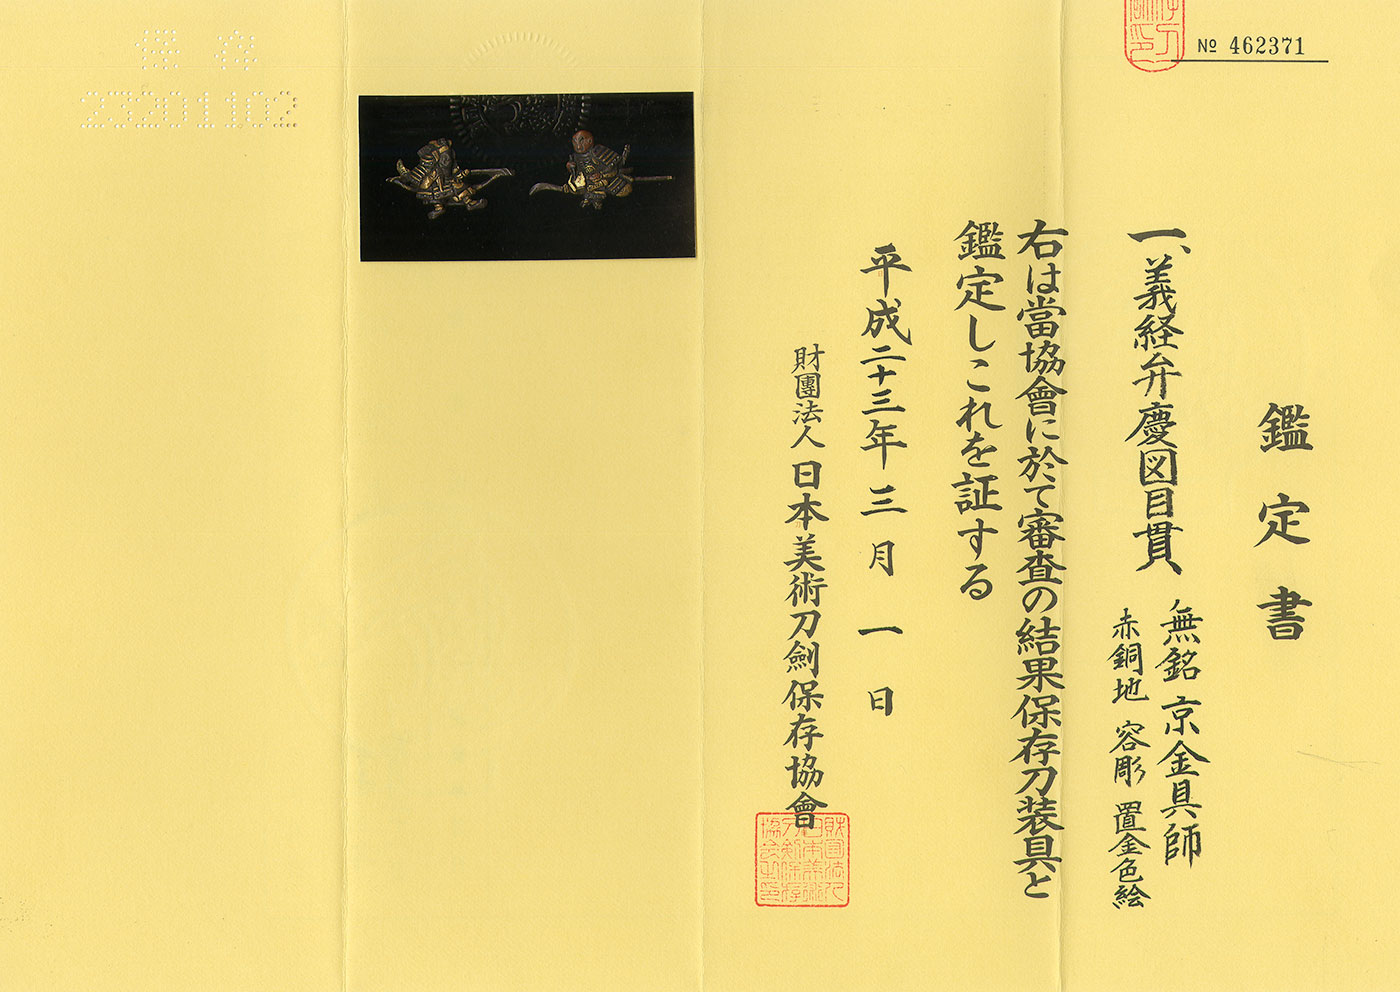 No 462371
鑑定書
一、義経弁慶図目貫
無銘 京金具師
赤銅地 容彫 置金色絵
右は當協會に於て審査の結果保存刀装具と
鑑定しこれを証する
平成二十三年三月一日
財團法人 日本美術刀劍保存協會
財団法人日本美術刀剣保存協会之印
保存
23201102